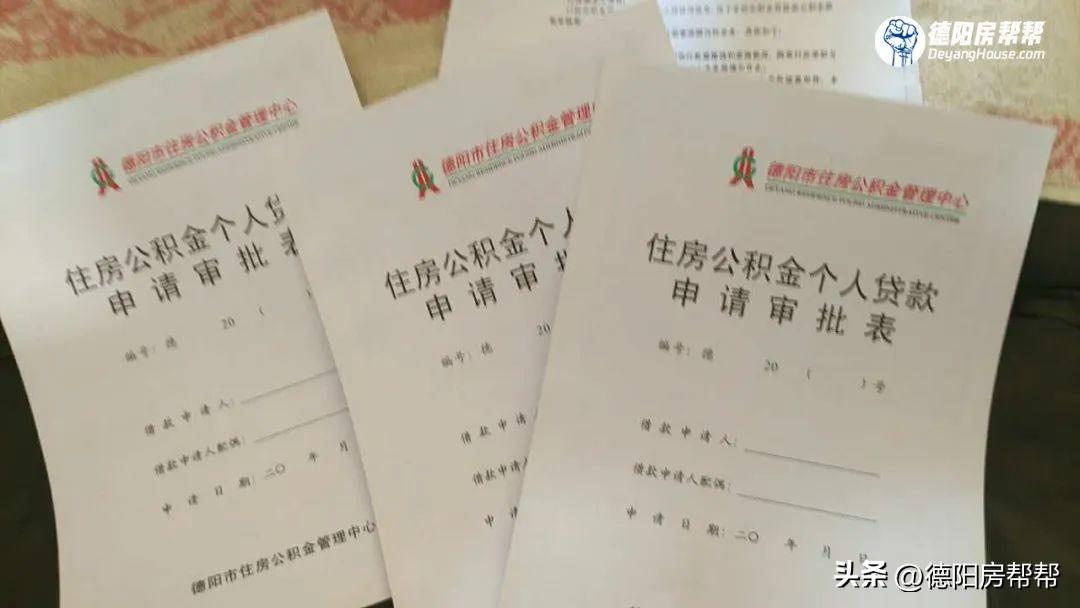 德阳房帮帮
DeyangHouse.com
德阳市住房公积金管理中心
住房公积金个人贷
申请审批表
编号：德 20 （
借款申请人：
借款申请人配偶：
申请日期：二〇 年 月
德阳市住房公积金管理中心
德阳市住房公积金管理
住房公积金个人
申请审批
编号：德 20
借款申请
借款申请人
申请
德阳市住房公积金管理中心
DEYANG RESIDENCE FOUND ADMINISTRATIVE CENTER
住房公积金个人贷款
申请审批表
编号：德 20 （ ）号
借款申请人：
借款申请人配偶：
申请日期：二〇 年 月 日
头条 @德阳房帮帮